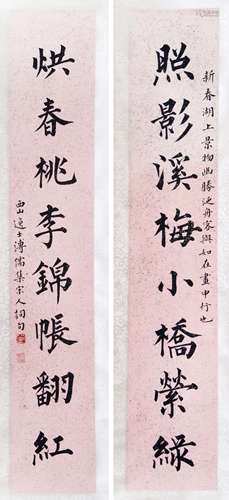 照影溪梅小橋縈綠
新春湖上景物幽勝泛舟容與如在畫中行也
烘春桃李錦帳翻紅
西山逸士溥儒集宋人詞句